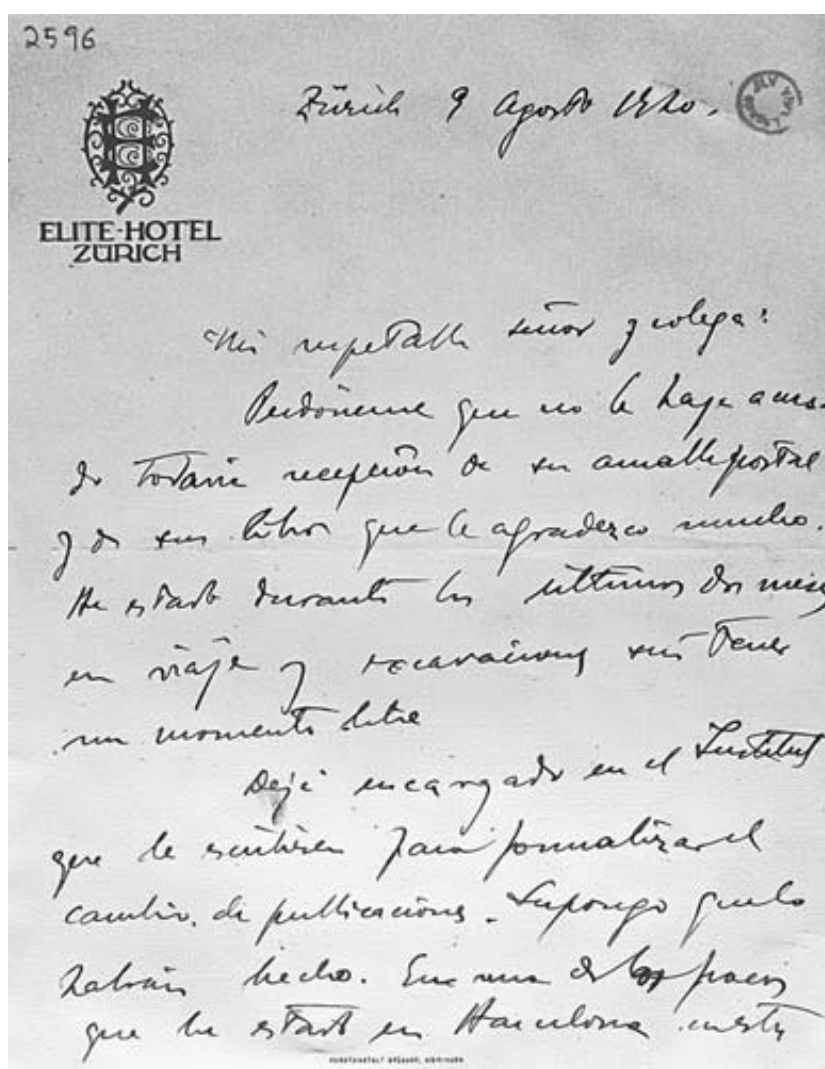 2596
Zürich 9 Agosto 1920.
ELITE-HOTEL
ZÜRICH
Mi respetable señor y colega:
Perdóneme que no le haya acusa-
do todavía recepción de su amable postal
y de sus libros que le agradezco mucho.
He estado durante los últimos dos meses
en viaje y excavaciones sin tener
un momento libre
Dejé encargado en el Institut
que le escribiesen para formalizar el
cambio de publicaciones. Supongo que lo
habrán hecho. En uno de los pocos
que he estado en Barcelona